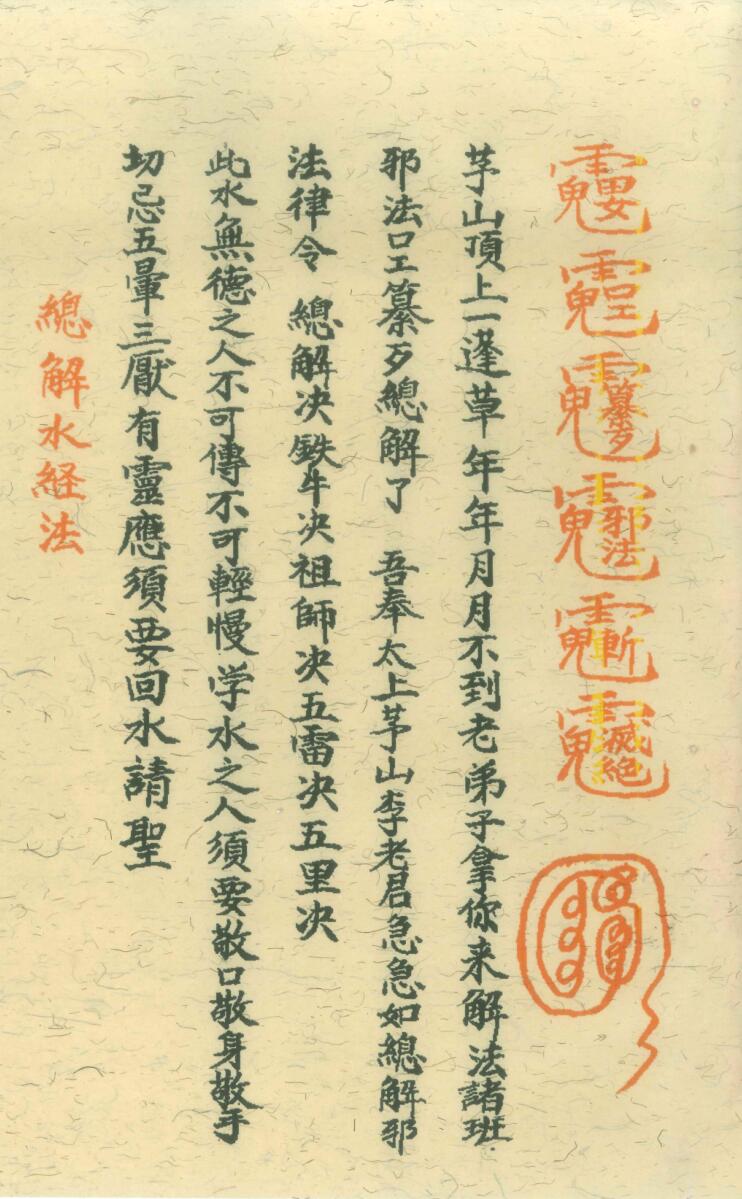 芽山頂上一蓬草年年月月不到老弟子拿你来解法諸班
邪法口工纂歹總解了 吾奉太上茅山李老君急急如總解邪
法律令 總解决鉄牛决祖師决五雷决五里决
此水無德之人不可傳不可輕慢学水之人須要敬口敬身敬手
切忌五暈三厭有靈應須要回水請聖
總解水経法